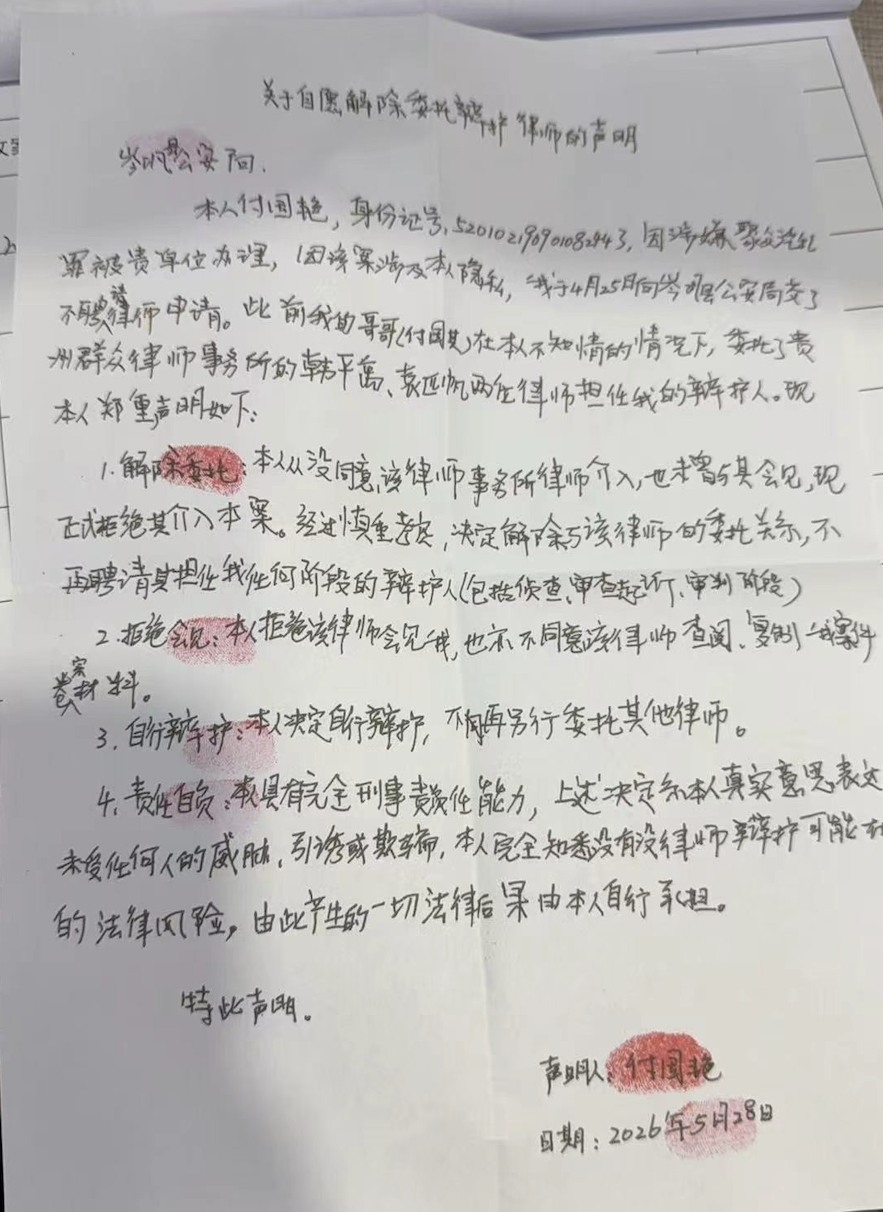 关于自愿解除委托辩护律师的声明
岑巩县公安局:
本人付国艳,身份证号,520102196901082443,因涉嫌聚众淫乱
罪被贵单位办理,因该案涉及本人隐私,我于4月25日向岑巩县公安局交了
不聘请律师申请。此前我的哥哥(付国其)在本人不知情的情况下,委托了贵
州群众律师事务所的韩平、袁匹帆两位律师担任我的辩护人。现
本人郑重声明如下:
1.解除委托:本人从没同意该律师事务所律师介入,也未曾与其会见,现
正式拒绝其介入本案。经过慎重考虑,决定解除与该律师的委托关系,不
再聘请其担任我任何阶段的辩护人(包括侦查、审查起诉、审判阶段)
2.拒绝会见:本人拒绝该律师会见我,也亦不同意该律师查阅、复制我案件
卷案材料。
3.自行辩护:本人决定自行辩护,不再另行委托其他律师。
4.责任自负:本人具有完全刑事责任能力,上述决定系本人真实意思表达
未受任何人的威胁、引诱或欺骗,本人完全知悉没有没律师辩护可能有
的法律风险,由此产生的一切法律后果由本人自行承担。
特此声明。
声明人:付国艳
日期:2026年5月28日